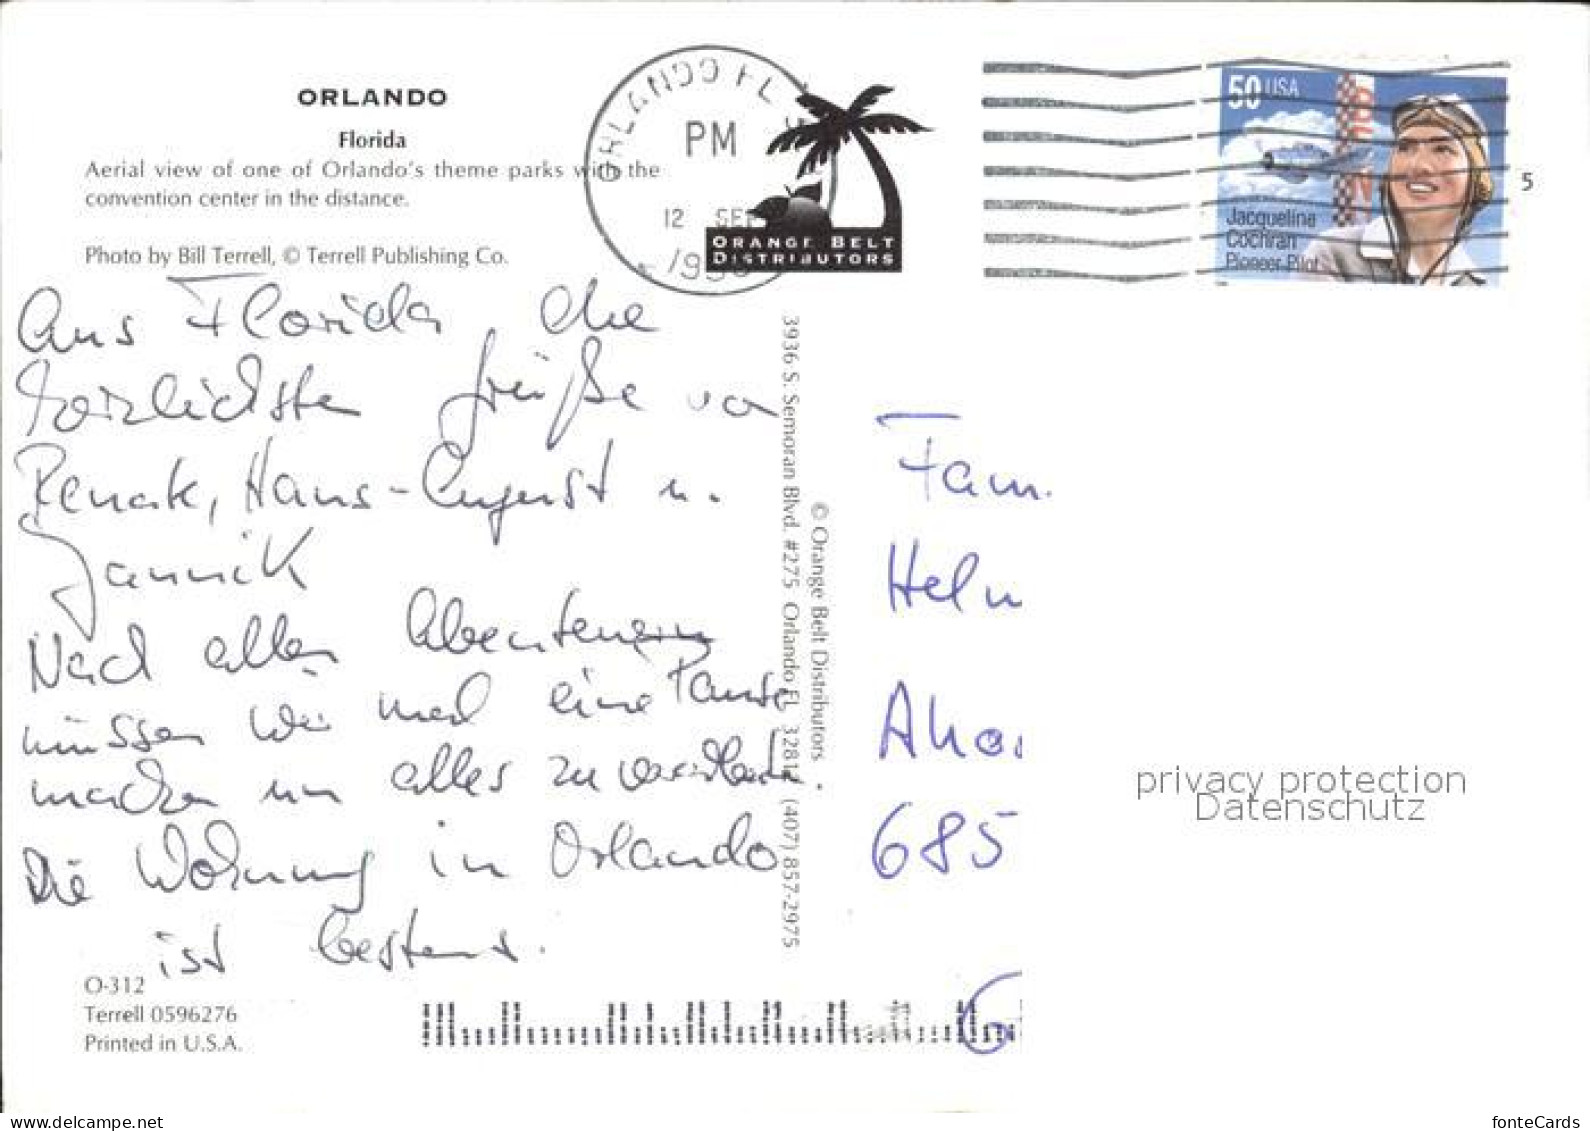 ORLANDO
Florida
Aerial view of one of Orlando's theme parks with the
convention center in the distance.
Photo by Bill Terrell, © Terrell Publishing Co.
Aus Florida die
herzlichsten Grüße von
Renate, Hans-August u.
Jannik
Nach allen Abenteuern
müssen wir mal eine Pause
machen um alles zu verarbeiten.
Die Wohnung in Orlando
ist bestens.
O-312
Terrell 0596276
Printed in U.S.A.
ORLANDO FL
PM
12 SEP
ORANGE BELT
DISTRIBUTORS
3936 S. Semoran Blvd. #275 Orlando FL (407) 857-2975
© Orange Belt Distributors
50 USA
Jacqueline
Cochran
Pioneer Pilot
5
Fam.
685
privacy protection
Datenschutz
www.delcampe.net
fonteCards